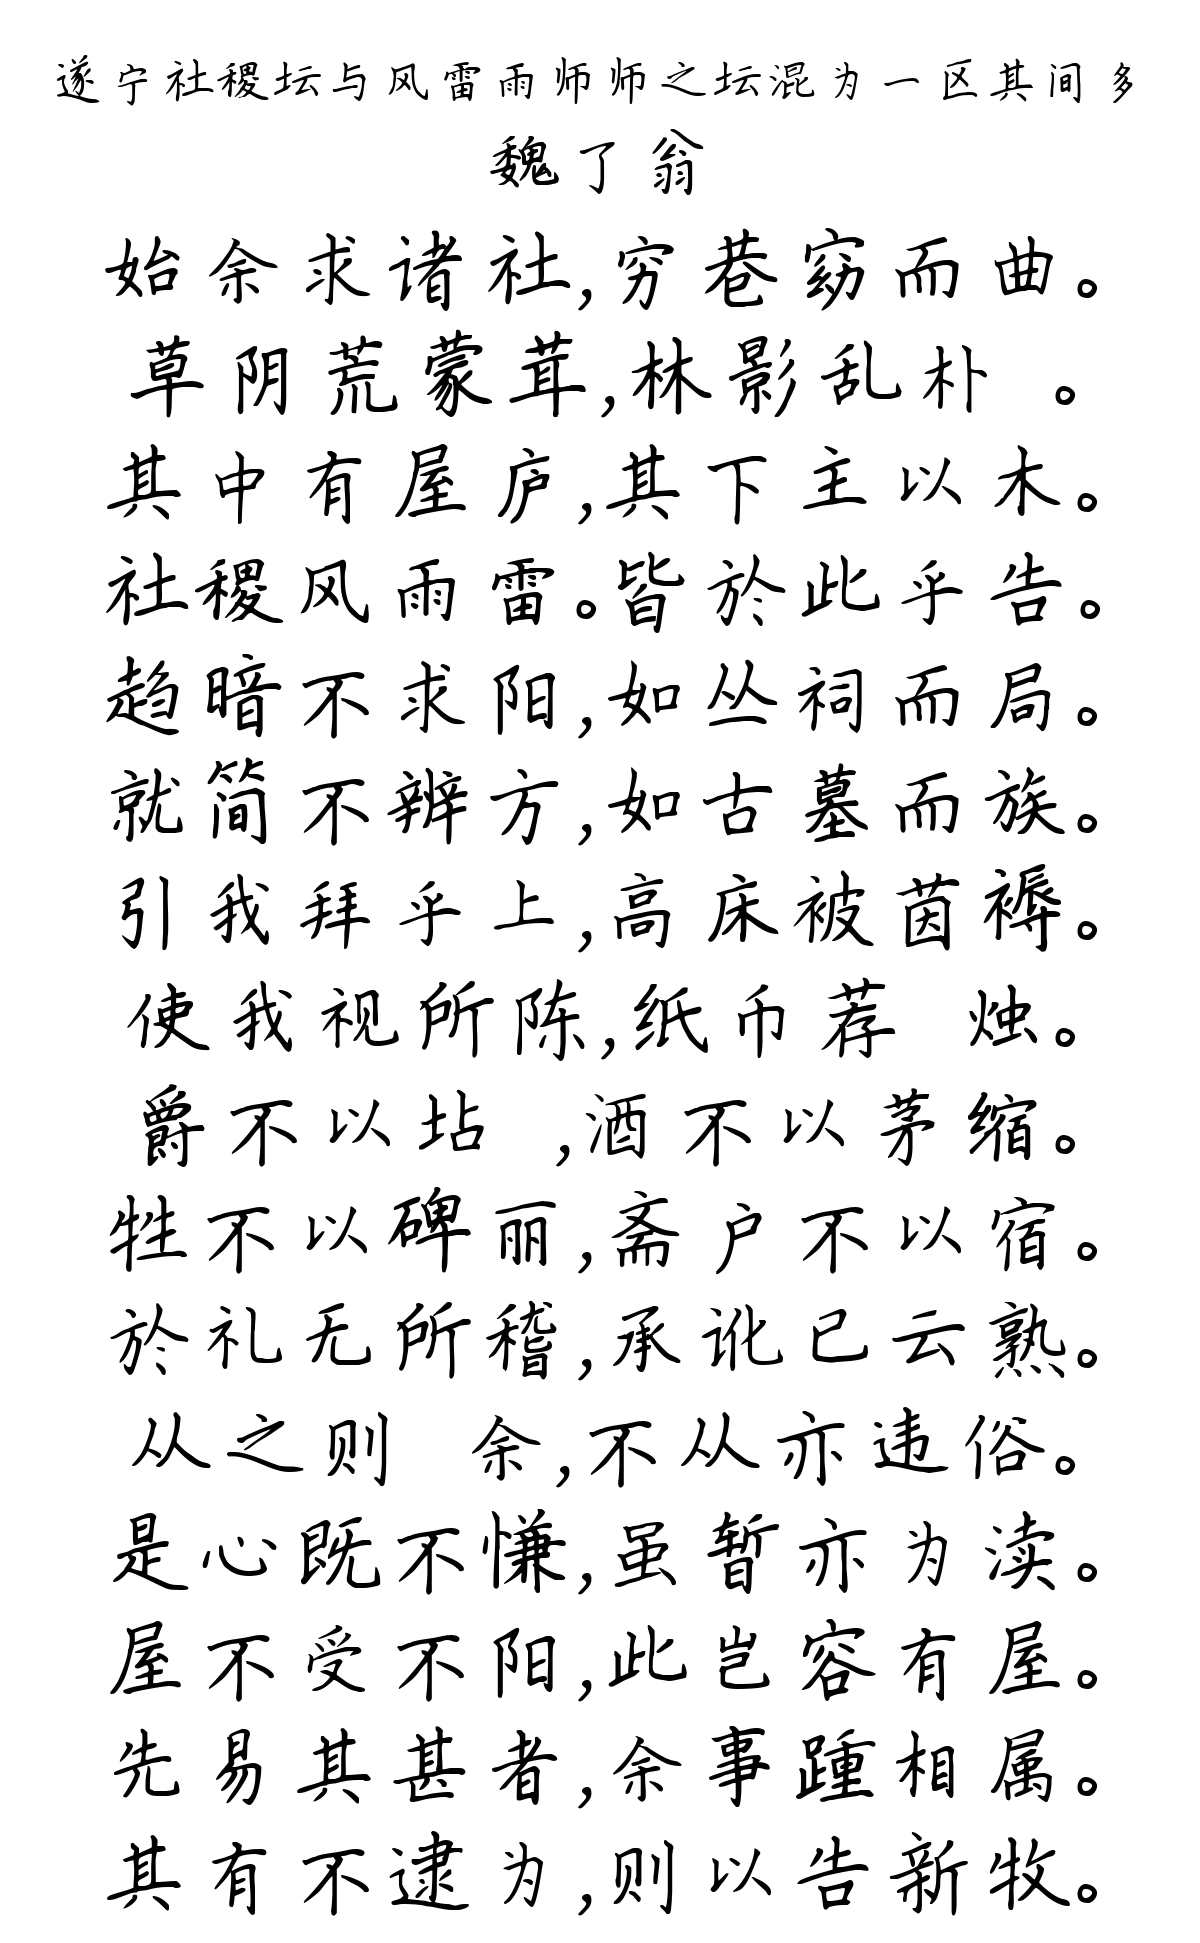 遂宁社稷坛与风雷雨师师之坛混为一区其间多
魏了翁
始余求诸社,穷巷窈而曲。
草阴荒蒙茸,林影乱朴 。
其中有屋庐,其下主以木。
社稷风雨雷。皆於此乎告。
趋暗不求阳,如丛祠而局。
就简不辨方,如古墓而族。
引我拜乎上,高床被茵褥。
使我视所陈,纸币荐 烛。
爵不以坫 ,酒不以茅缩。
牲不以碑丽,斋户不以宿。
於礼无所稽,承讹已云熟。
从之则 余,不从亦违俗。
是心既不慊,虽暂亦为渎。
屋不受不阳,此岂容有屋。
先易其甚者,余事踵相属。
其有不逮为,则以告新牧。